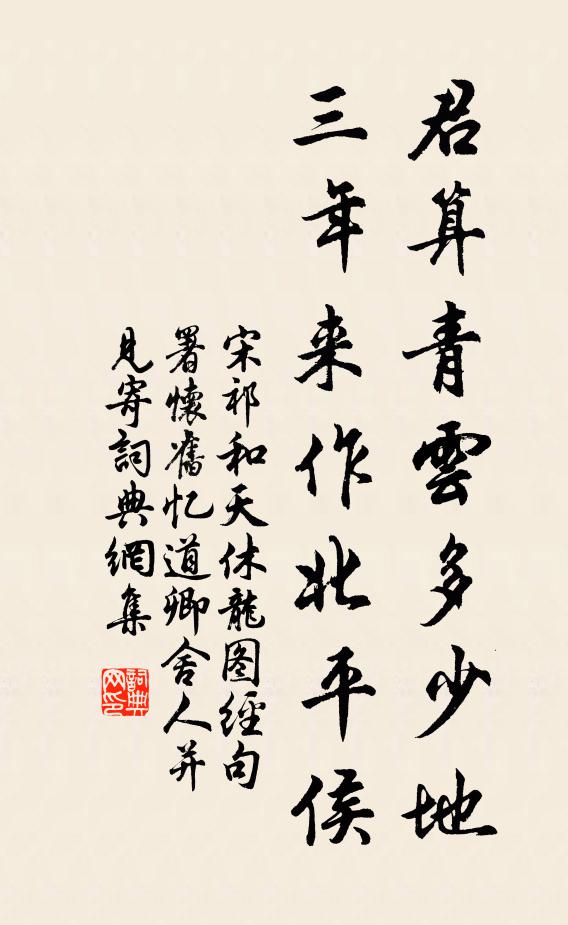 君算青雲多少地
三年来作北平侯
宋祁和天休龍图經句
署懷舊忆道卿舍人并
見寄詞典網集
詞典
网印